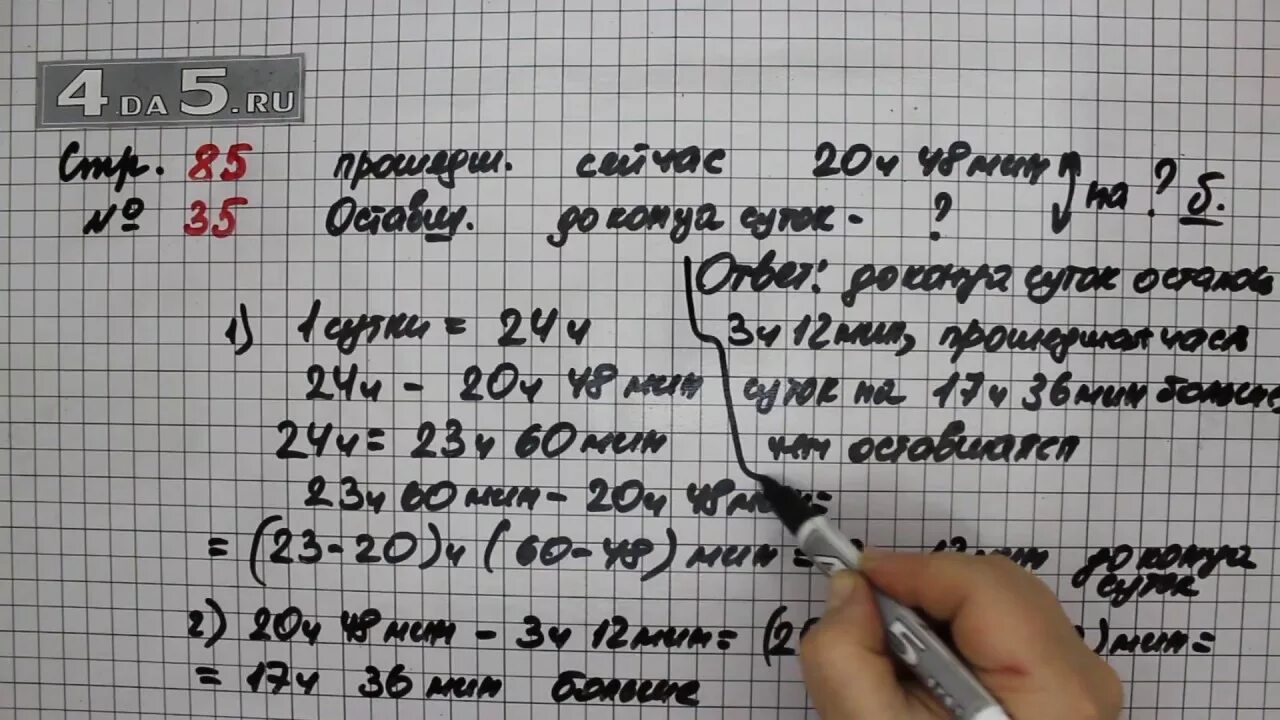 4 DA 5.RU
Стр. 85 прошедш. сейчас 20ч 48мин на ? б.
№ 35 Оставш. до конца суток - ?
Ответ: до конца суток осталось
3ч 12мин, прошедшая часть
суток на 17ч 36мин больше,
чем оставшаяся
1) 1 сутки = 24ч
24ч - 20ч 48мин
24ч = 23ч 60мин
23ч 60мин - 20ч 48мин =
= (23-20)ч (60-48)мин = до конца
суток
2) 20ч 48мин - 3ч 12мин = (2 )мин =
= 17ч 36мин больше